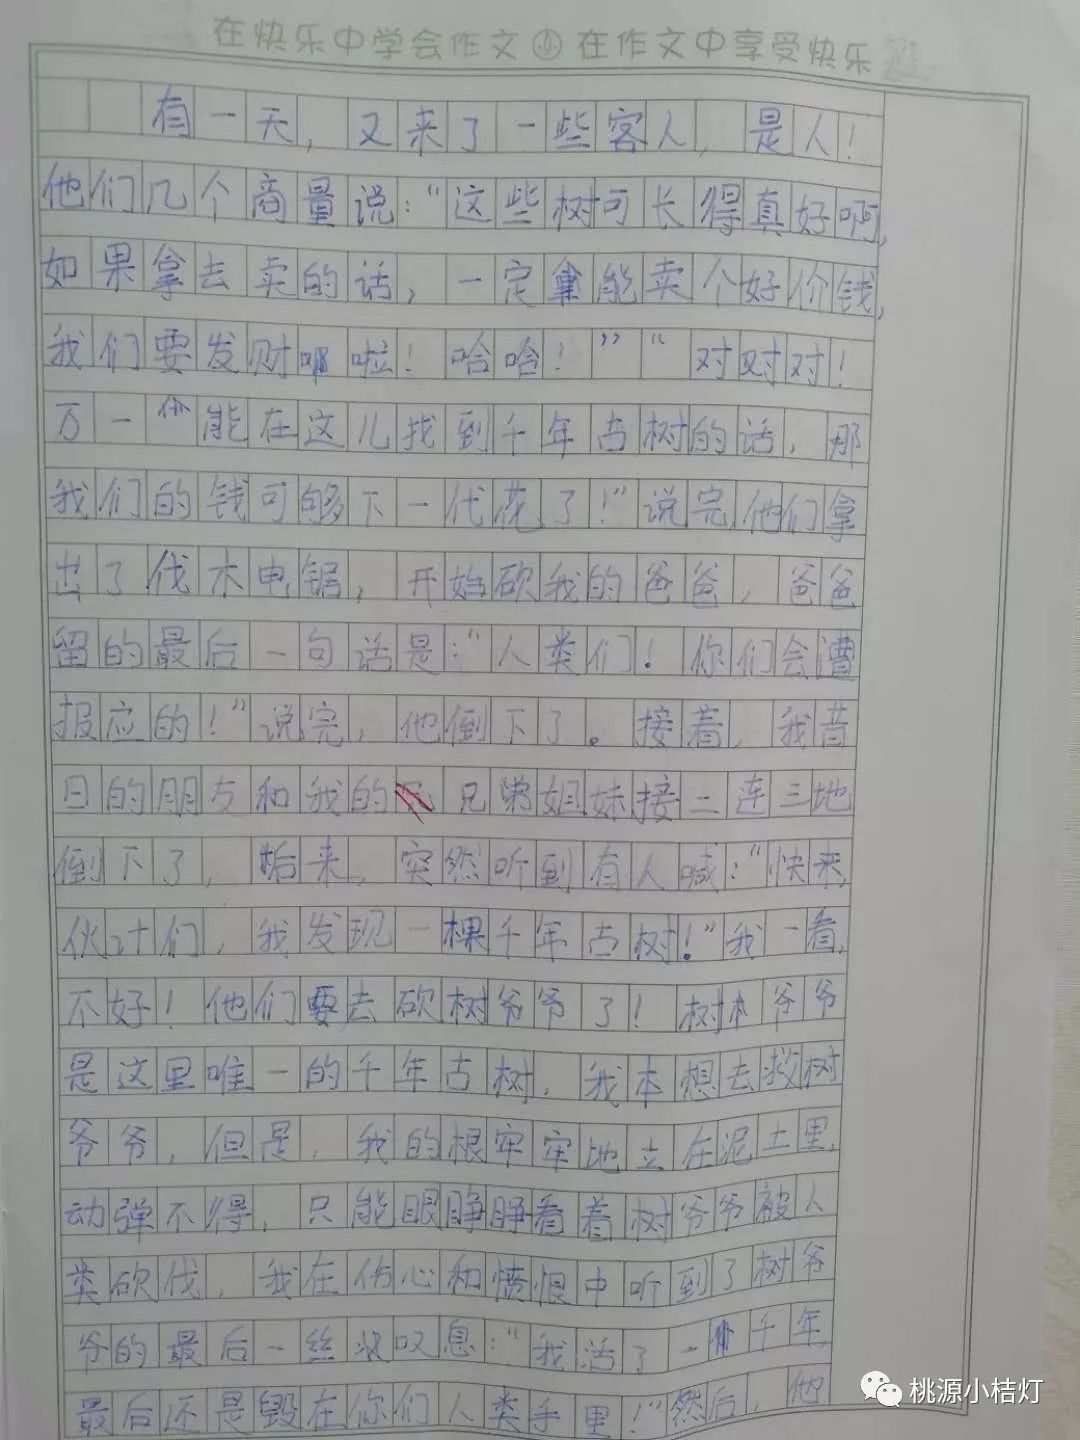 在快乐中学会作文 在作文中享受快乐
有一天，又来了一些客人，是人！
他们几个商量说：“这些树可长得真好啊，
如果拿去卖的话，一定能卖个好价钱，
我们要发财啦！哈哈！”“对对对！
万一能在这儿找到千年古树的话，那
我们的钱可够下一代花了！”说完他们拿
出了伐木电锯，开始砍我的爸爸，爸爸
留的最后一句话是：“人类们！你们会遭
报应的！”说完，他倒下了。接着，我昔
日的朋友和我的兄弟姐妹接二连三地
倒下了，后来，突然听到有人喊：“快来，
伙计们，我发现一棵千年古树！”我一看，
不好！他们要去砍树爷爷了！树木爷爷
是这里唯一的千年古树，我本想去救树
爷爷，但是，我的根牢牢地立在泥土里，
动弹不得，只能眼睁睁看着树爷爷被人
类砍伐，我在伤心和愤恨中听到了树爷
爷的最后一丝叹息：“我活了一千年，
最后还是毁在你们人类手里！”然后，他
桃源小桔灯